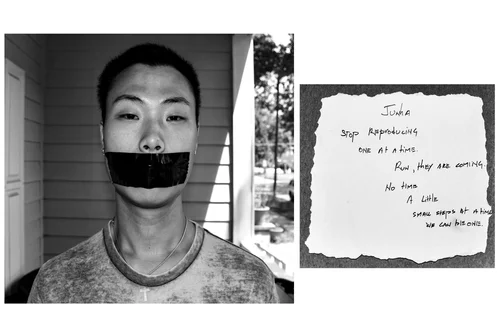 STOP REPRODUCING
ONE AT A TIME.
RUN, THEY ARE COMING.
NO TIME
A LITTLE
SMALL STEPS AT A TIME
WE CAN ONE.